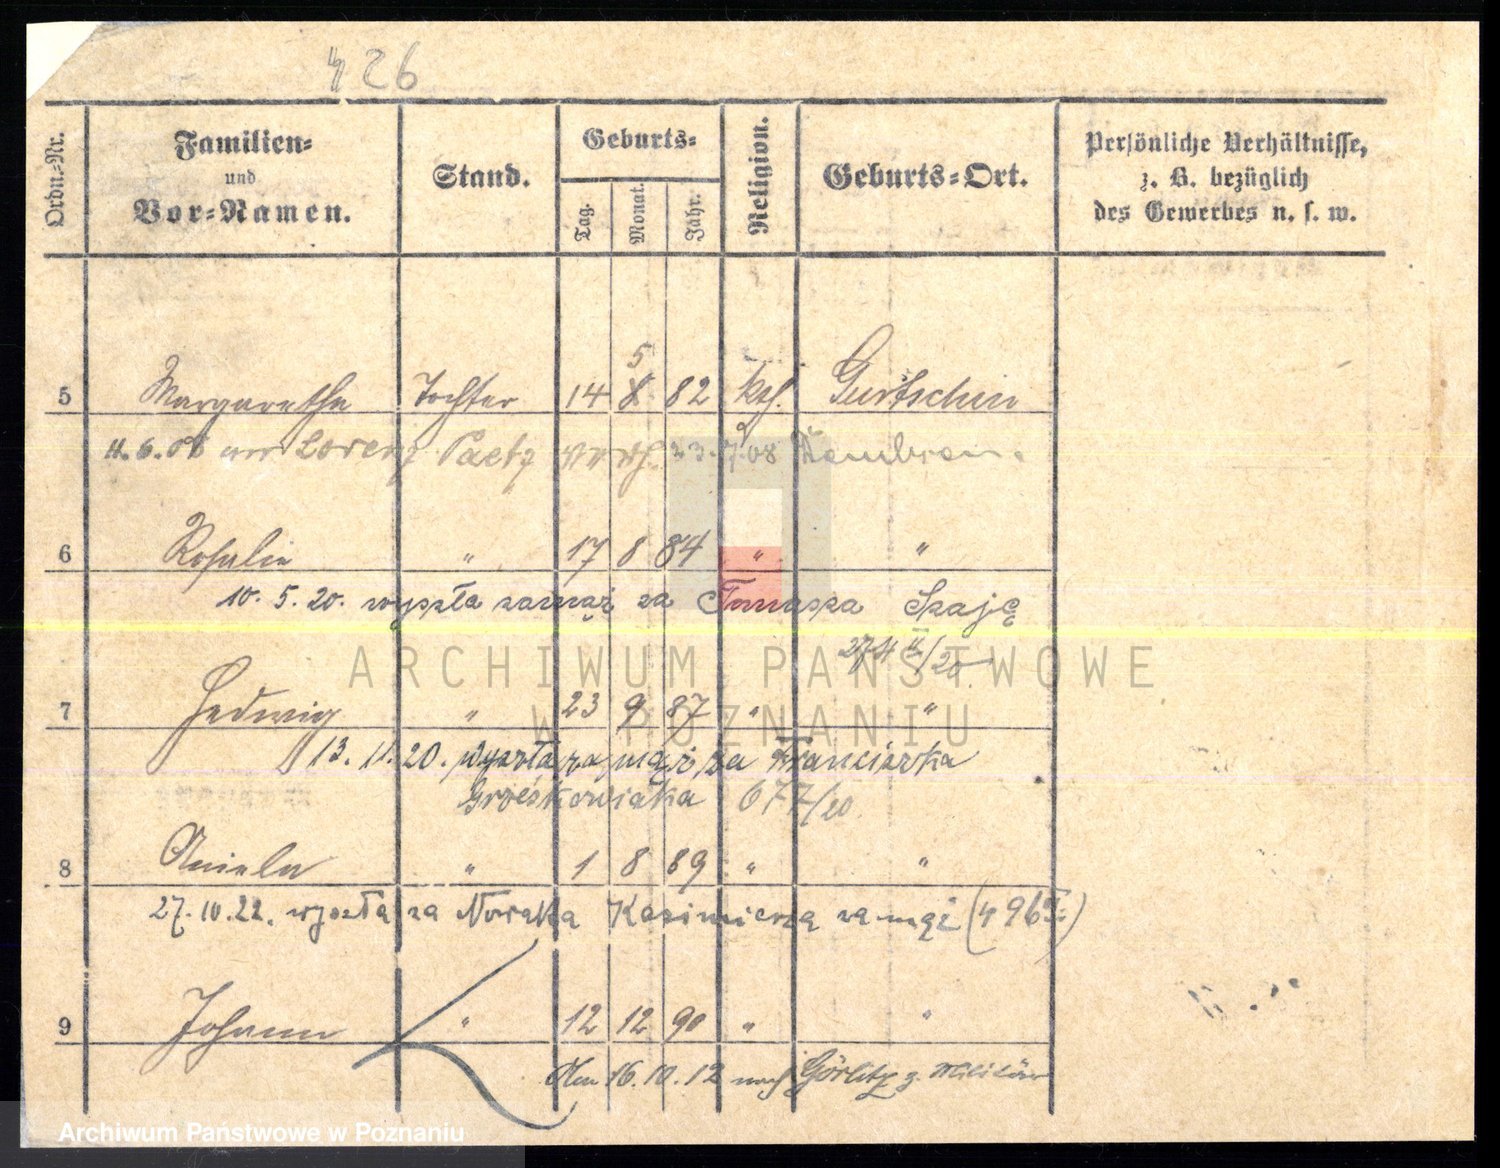 426
Ordn.-Nr.
Familien-
und
Vor-Namen.
Stand.
Geburts-
Tag.
Monat.
Jahr.
Religion.
Geburts-Ort.
Persönliche Verhältnisse,
z. B. bezüglich
des Gewerbes u. s. w.
5
5 Margaretha Tochter 14 8 82 kth. Gurtschin
11.6.08 an Lorenz Paetz 23.7.08
6 Rosalie " 17 8 84 " "
10. 5. 20. wyszła zamąż za Tomasza Szaję
274 II/20
7 Hedwig " 23 9 87 " "
13. 11. 20. wyszła za mąż za Franciszka
Grześkowiaka 677/20.
8 Aniela " 1 8 89 " "
27. 10. 22. wyszła za Nowaka Kazimierza za mąż
9 Johann " 12 12 90 " "
16. 10. 12 nach Görlitz z. Militär
ARCHIWUM PAŃSTWOWE
W POZNANIU
Archiwum Państwowe w Poznaniu